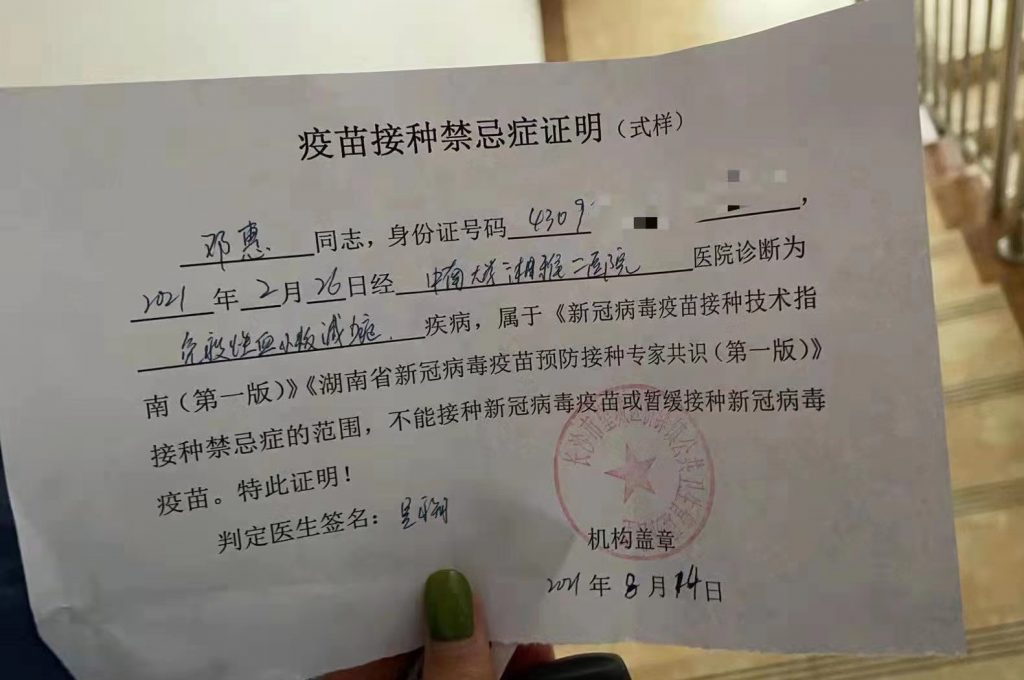 疫苗接种禁忌症证明（式样）
邓惠 同志，身份证号码 4309
2021 年 2 月 26 日经 中南大学湘雅二医院 医院诊断为
免疫性血小板减少症 疾病，属于《新冠病毒疫苗接种技术指
南（第一版）》《湖南省新冠病毒疫苗预防接种专家共识（第一版）》
接种禁忌症的范围，不能接种新冠病毒疫苗或暂缓接种新冠病毒
疫苗。特此证明！
判定医生签名：
长沙市
公共卫生
机构盖章
2021 年 8 月 14 日